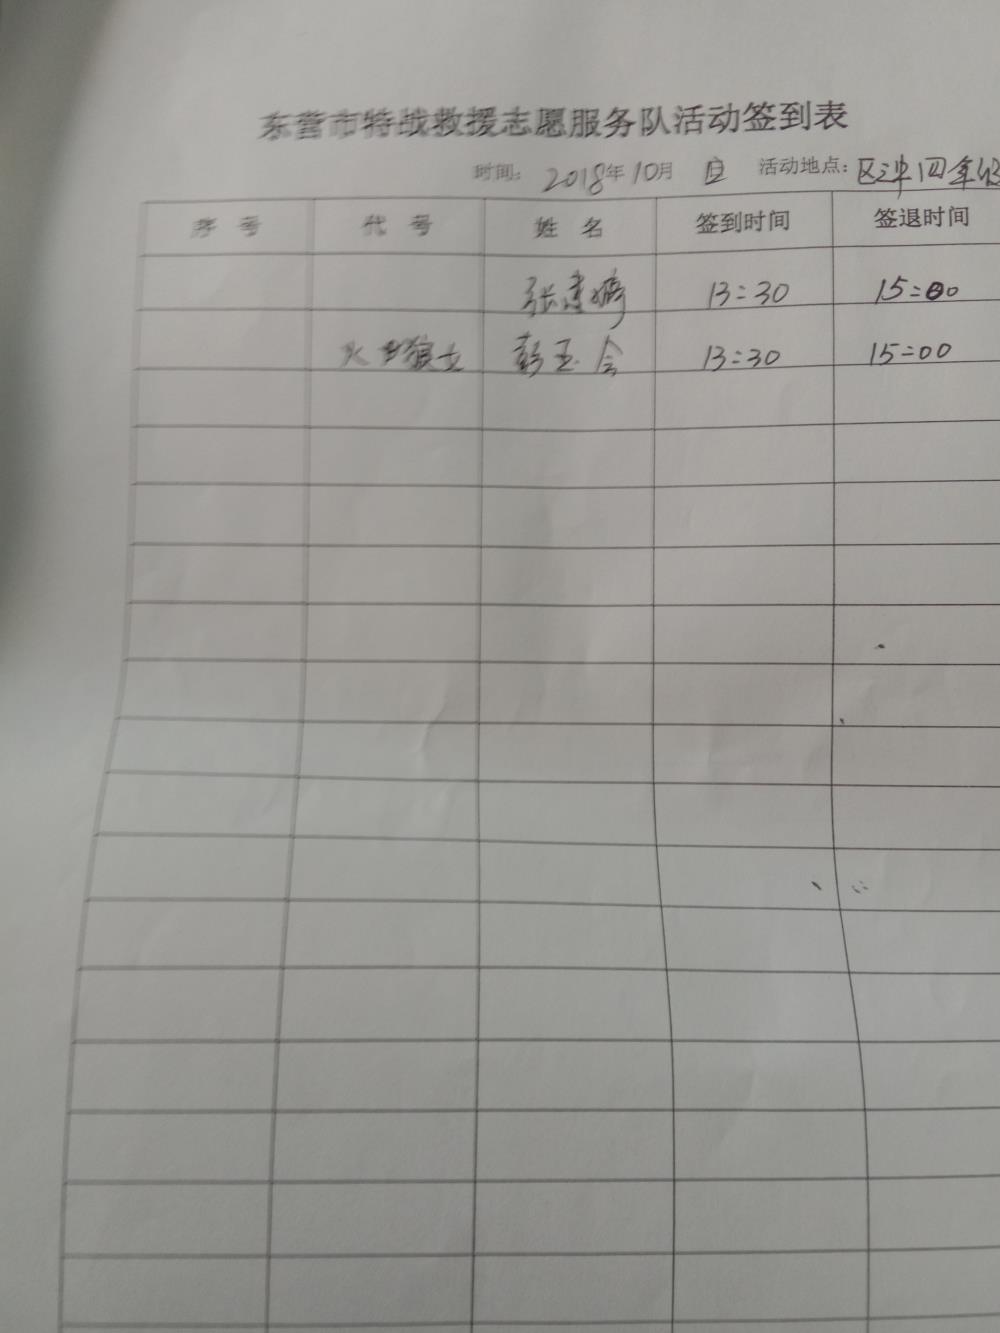 东营市特战救援志愿服务队活动签到表
时间: 2018年10月 日 活动地点: 区 四年级
序号 代号 姓名 签到时间 签退时间
张 13:30 15:00
火 狼士 彭玉会 13:30 15:00